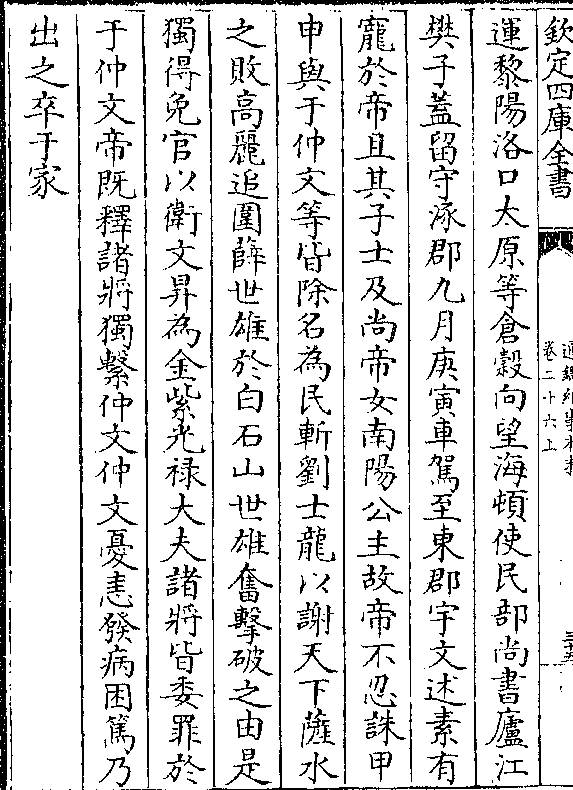 欽定四庫全書
通鑑紀事本末
卷二十六上
三十五
運黎陽洛口太原等倉穀向望海頓使民部尚書廬江
樊子蓋留守涿郡九月庚寅車駕至東都宇文述素有
寵於帝且其子士及尚帝女南陽公主故帝不忍誅甲
申與于仲文等皆除名為民斬劉士龍以謝天下薩水
之敗高麗追圍薛世雄於白石山世雄奮擊破之由是
獨得免官以衛文昇為金紫光禄大夫諸將皆委罪於
于仲文帝既釋諸將獨繫仲文仲文憂恚發病困篤乃
出之卒于家